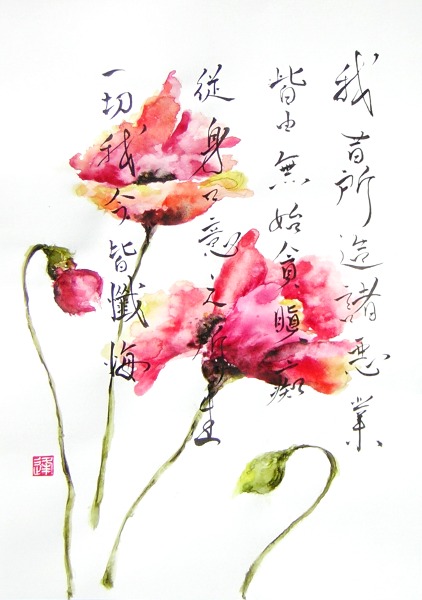 我昔所造諸惡業
皆由無始貪瞋癡
從身口意之所生
一切我今皆懺悔
逢